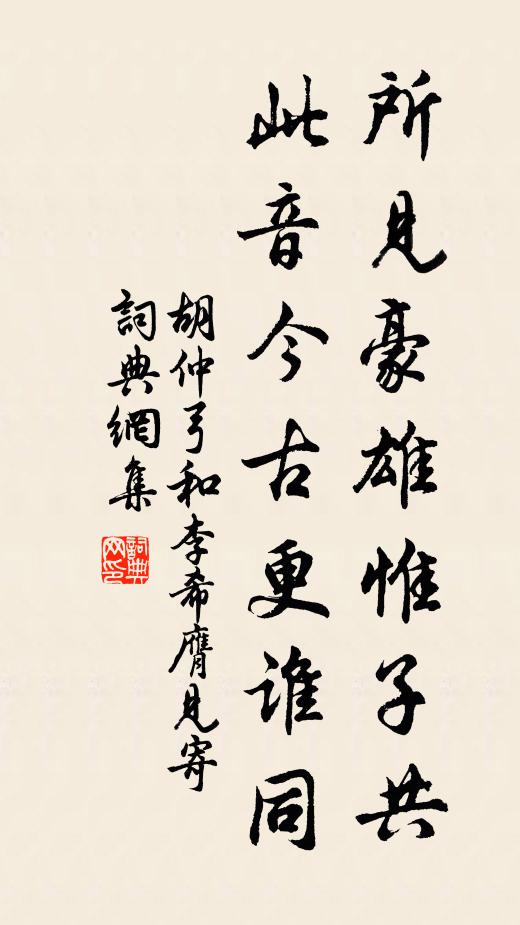 所見豪雄惟子共
此音今古更誰同
胡仲弓和李希膺見寄
詞典網集
詞典网印